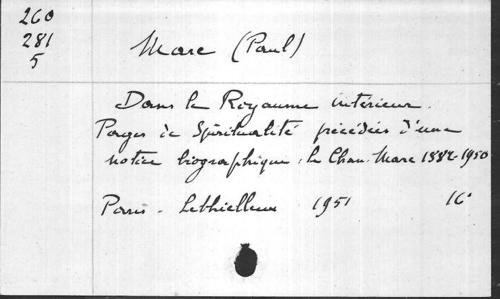 260
281
5
Marc (Paul)
Dans le Royaume intérieur.
Pages de Spiritualité précédées d'une
notice biographique : le Chan. Marc 1882-1950
Paris - Lethielleux 1951 16°